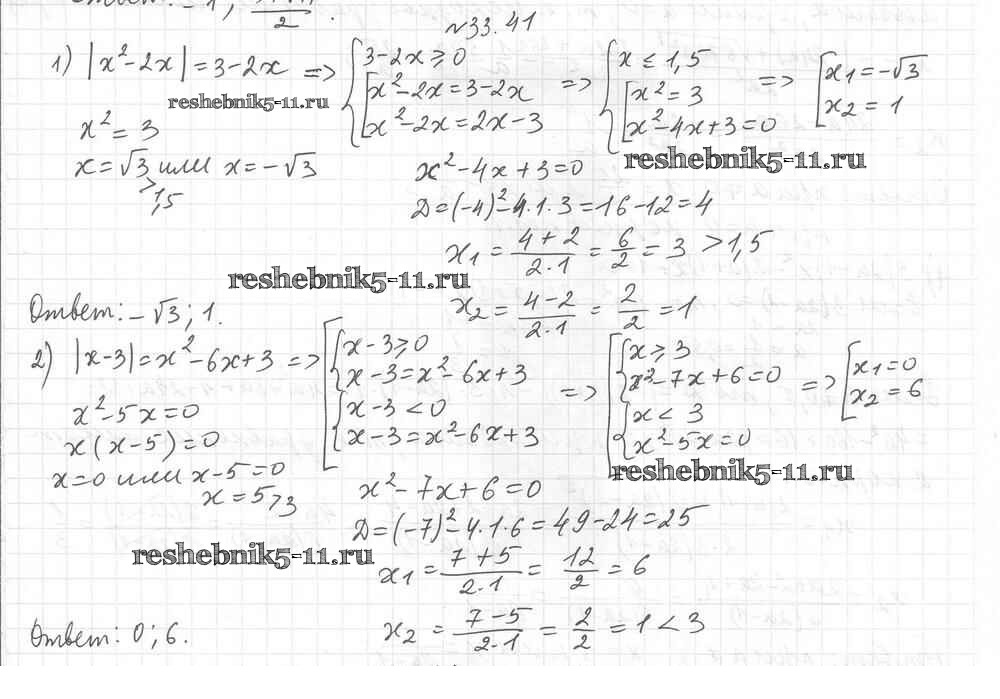 Ответ: -1;
2
№33.41
1) |x²-2x|=3-2x => { 3-2x≥0 [ x²-2x=3-2x x²-2x=2x-3 => { x≤1,5 [ x²=3 x²-4x+3=0 => [ x₁=-√3 x₂=1
reshebnik5-11.ru
x²=3
x=√3 или x=-√3
>1,5
reshebnik5-11.ru
x²-4x+3=0
D=(-4)²-4·1·3=16-12=4
x₁=(4+2)/(2·1)=6/2=3>1,5
reshebnik5-11.ru
x₂=(4-2)/(2·1)=2/2=1
Ответ: -√3; 1.
2) |x-3|=x²-6x+3 => [ { x-3≥0 x-3=x²-6x+3 { x-3<0 x-3=x²-6x+3 => [ { x≥3 x²-7x+6=0 { x<3 x²-5x=0 => [ x₁=0 x₂=6
x²-5x=0
x(x-5)=0
x=0 или x-5=0
x=5>3
reshebnik5-11.ru
x²-7x+6=0
D=(-7)²-4·1·6=49-24=25
reshebnik5-11.ru
x₁=(7+5)/(2·1)=12/2=6
x₂=(7-5)/(2·1)=2/2=1<3
Ответ: 0; 6.